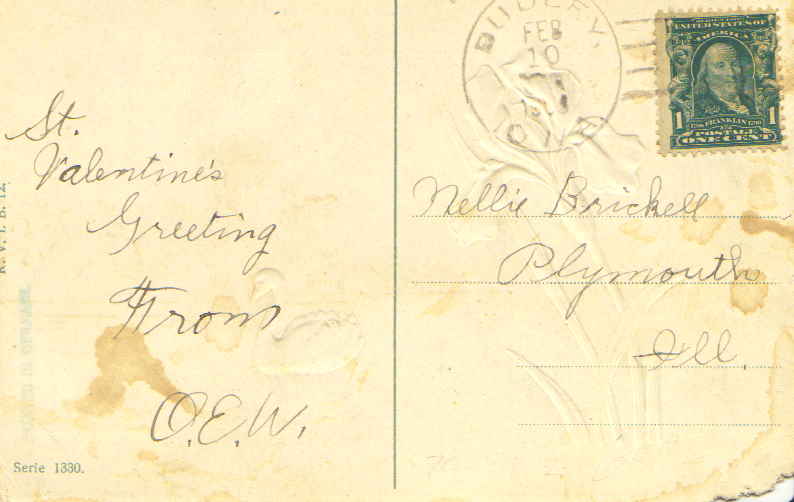 St.
Valentine's
Greeting
From
O.E.W.
Serie 1330.
DUDLEY,
FEB
10
UNITED STATES OF
AMERICA
1 FRANKLIN 1
POSTAGE
ONE CENT
Nellie Brickell
Plymouth
Ill.